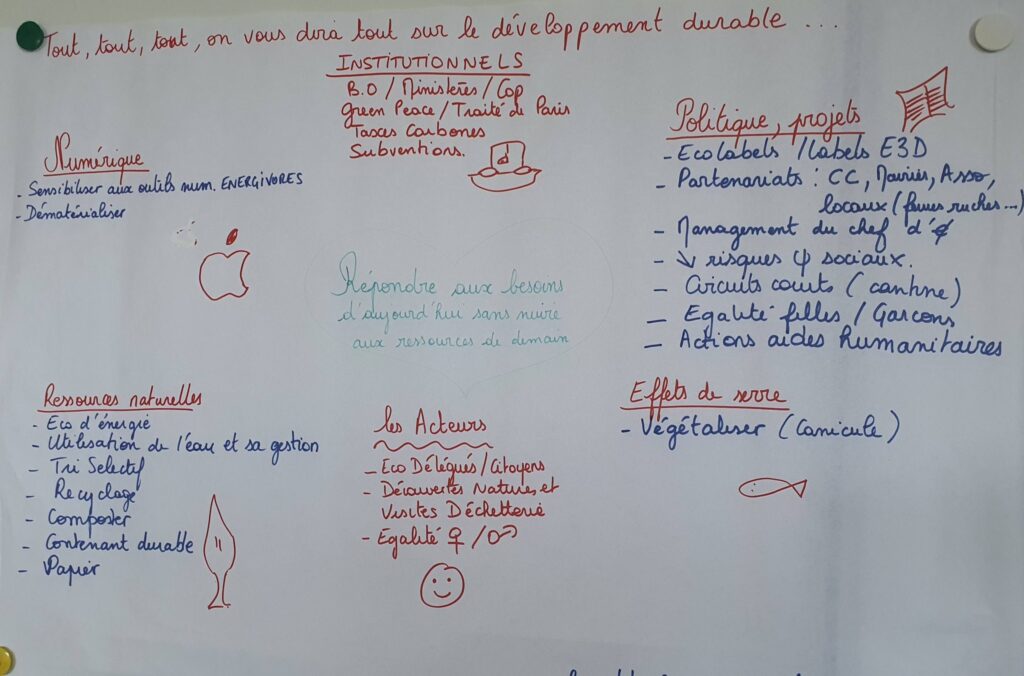 Tout, tout, tout, on vous dira tout sur le développement durable ...
INSTITUTIONNELS
B.O / Ministères / Cop
Green Peace / Traité de Paris
Taxes Carbones
Subventions.
Numérique
- Sensibiliser aux outils num. ENERGIVORES
- Dématérialiser
Politique, projets
- Ecolabels / Labels E3D
- Partenariats : CC, Mairies, Asso,
locaux (fermes ruches...)
- Management du chef d'é
- ↘ risques ψ sociaux.
- Circuits courts (cantine)
- Egalité filles / Garcons
- Actions aides humanitaires
Répondre aux besoins
d'aujourd'hui sans nuire
aux ressources de demain
Ressources naturelles
- Eco d'énergie
- Utilisation de l'eau et sa gestion
- Tri Selectif
- Recyclage
- Composter
- Contenant durable
- Papier
les Acteurs
- Eco Délégués / Citoyens
- Découvertes Natures et
Visites Déchetterie
- Egalité ♀ / ♂
Effets de serre
- Végétaliser (Canicule)